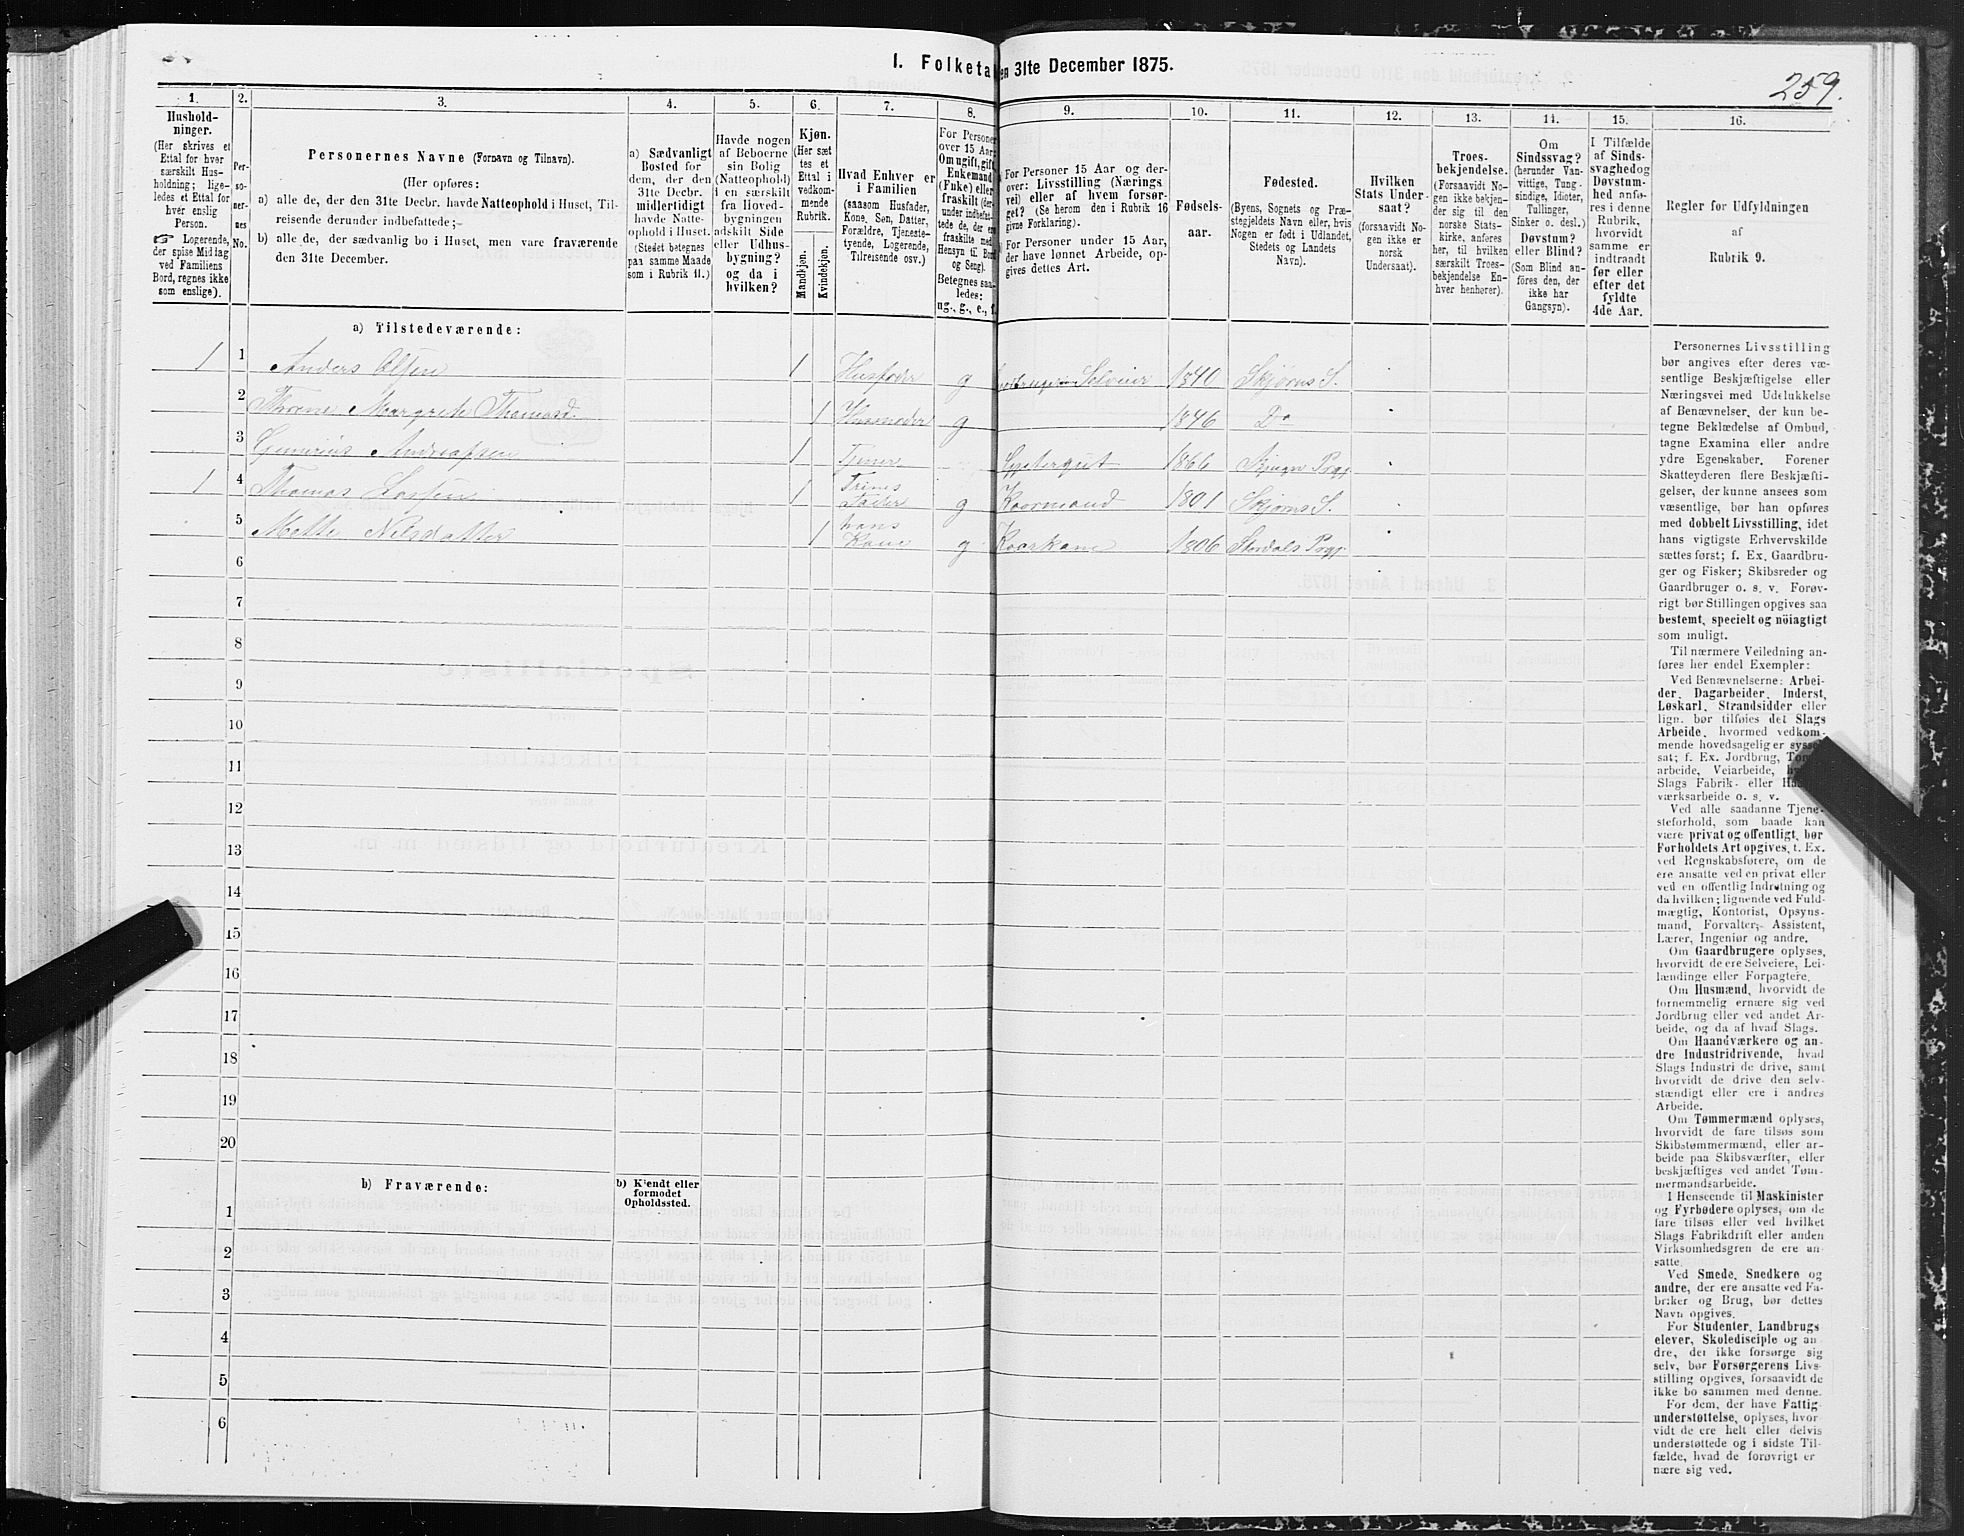 259.
I. Folketa en 31te December 1875.
1. 2. 3. 4. 5. 6. 7. 8. 9. 10. 11. 12. 13. 14. 15. 16.
Hushold-
ninger.
(Her skrives et
Ettal for hver
særskilt Hus-
holdning; lige-
ledes et Ettal for
hver enslig
Person.
☞ Logerende,
der spise Middag
ved Familiens
Bord, regnes ikke
som enslige).
Per-
so-
ner-
nes
No.
Personernes Navne (Fornavn og Tilnavn).
(Her opføres:
a) alle de, der den 31te Decbr. havde Natteophold i Huset, Til-
reisende derunder indbefattede;
b) alle de, der sædvanlig bo i Huset, men vare fraværende
den 31te December.
a) Sædvanligt
Bosted for
dem, der den
31te Decbr.
midlertidigt
havde Natte-
ophold i Huset.
(Stedet betegnes
paa samme Maade
som i Rubrik 11.)
Havde nogen
af Beboerne
sin Bolig
(Natteophold)
i en særskilt
fra Hoved-
bygningen
adskilt Side
eller Udhus-
bygning?
og da i
hvilken?
Kjøn.
(Her sæt
tes et
Ettal i
vedkom-
mende
Rubrik.
Mandkjøn.
Kvindekjøn.
Hvad Enhver er
i Familien
(saasom Husfader,
Kone, Søn, Datter,
Forældre, Tjeneste-
tyende, Logerende,
Tilreisende osv.)
For Personer
over 15 Aar:
Om ugift, gift,
Enkemand
(Enke) eller
fraskilt (der-
under indbefat-
tede de, der ere
fraskilte med
Hensyn til Bord
og Seng).
Betegnes saa-
ledes:
ug., g., e., f.
For Personer 15 Aar og der-
over: Livsstilling (Nærings
vei) eller af hvem forsør-
get? (Se herom den i Rubrik 16
givne Forklaring).
For Personer under 15 Aar,
der have lønnet Arbeide, op-
gives dettes Art.
Fødsels-
aar.
Fødested.
(Byens, Sognets og Præ-
stegjeldets Navn eller, hvis
Nogen er født i Udlandet,
Stedets og Landets
Navn).
Hvilken
Stats Under-
saat?
(forsaavidt No-
gen ikke er
norsk
Undersaat).
Troes-
bekjendelse.
(Forsaavidt No-
gen ikke bekjen-
der sig til den
norske Stats-
kirke, anføres
her, til hvilken
særskilt Troes-
bekjendelse En-
hver henhører).
Om
Sindssvag?
(herunder Van-
vittige, Tung-
sindige, Idioter,
Tullinger,
Sinker o. desl.)
Døvstum?
eller Blind?
(Som Blind an-
føres den, der
ikke har
Gangsyn).
I Tilfælde
af Sinds-
svaghed og
Døvstum-
hed anfø-
res i denne
Rubrik,
hvorvidt
samme er
indtraadt
før eller
efter det
fyldte
4de Aar.
Regler for Udfyldningen
af
Rubrik 9.
a) Tilstedeværende:
1 1 Anders Olsen 1 Husfader g Selveier 1840 Skjørns S.
2 Margrete Thomasd. 1 Husmoder g 1846 Do
3 Andreassen 1 Tjener 1866
1 4 Thomas Larsen 1 Trines Fader g Kaarmand 1801 Skjørns S.
5 Mette Nilsdatter 1 hans Kone g Kaarkone 1806 Stordals Prgj.
6
7
8
9
10
11
12
13
14
15
16
17
18
19
20
b) Fraværende:
b) Kjendt eller
formodet
Opholdssted.
1
2
3
4
5
6
Personernes Livsstilling
bør angives efter deres væ-
sentlige Beskjæftigelse eller
Næringsvei med Udelukkelse
af Benævnelser, der kun be-
tegne Beklædelse af Ombud,
tagne Examina eller andre
ydre Egenskaber. Forener
Skatteyderen flere Beskjæfti-
gelser, der kunne ansees som
væsentlige, bør han opføres
med dobbelt Livsstilling, idet
hans vigtigste Erhvervskilde
sættes først; f. Ex. Gaardbru-
ger og Fisker; Skibsreder og
Gaardbruger o. s. v. Forøv-
rigt bør Stillingen opgives saa
bestemt, specielt og nöiagtigt
som muligt.
Til nærmere Veiledning an-
føres her endel Exempler:
Ved Benævnelserne: Arbei-
der, Dagarbeider, Inderst,
Løskarl, Strandsidder eller
lign. bør tilføies det Slags
Arbeide, hvormed vedkom-
mende hovedsagelig er syssel
sat; f. Ex. Jordbrug,
arbeide, Veiarbeide,
Slags Fabrik- eller
værksarbeide o. s. v.
Ved alle saadanne Tjene-
steforhold, som baade kan
være privat og offentligt, bør
Forholdets Art opgives, t. Ex.
ved Regnskabsførere, om de
ere ansatte ved en privat eller
ved en offentlig Indretning og
da hvilken; lignende ved Fuld-
mægtig, Kontorist, Opsyns-
mand, Forvalter, Assistent,
Lærer, Ingeniør og andre.
Om Gaardbrugere oplyses,
hvorvidt de ere Selveiere, Lei-
lændinge eller Forpagtere.
Om Husmænd, hvorvidt de
fornemmelig ernære sig ved
Jordbrug eller ved andet Ar-
beide, og da af hvad Slags.
Om Haandværkere og an-
dre Industridrivende, hvad
Slags Industri de drive, samt
hvorvidt de drive den selv-
stændigt eller ere i andres
Arbeide.
Om Tømmermænd oplyses,
hvorvidt de fare tilsøs som
Skibstømmermænd, eller ar-
beide paa Skibsværfter, eller
beskjæftiges ved andet Tøm-
mermandsarbeide.
I Henseende til Maskinister
og Fyrbødere oplyses, om de
fare tilsøs eller ved hvilket
Slags Fabrikdrift eller anden
Virksomhedsgren de ere an-
satte.
Ved Smede, Snedkere og
andre, der ere ansatte ved Fa-
briker og Brug, bør dettes
Navn opgives.
For Studenter, Landbrugs
elever, Skoledisciple og an-
dre, der ikke forsørge sig
selv, bør Forsørgerens Livs-
stilling opgives, forsaavidt de
ikke bo sammen med denne.
For dem, der have Fattig-
understøttelse, oplyses, hvor
vidt de ere helt eller delvis
understøttede og i sidste Til-
fælde, hvad de forøvrigt er
nære sig ved.